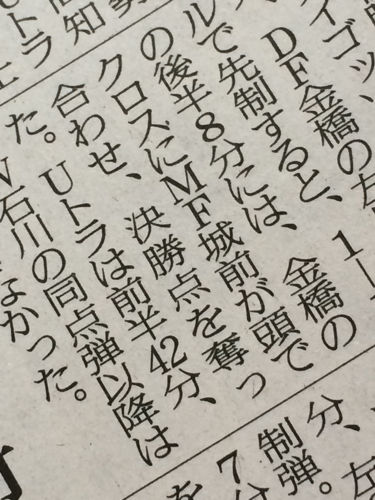 イゴッ、
DF金橋の左
ルで先制すると、1―
の後半8分には、金橋の
クロスにMF城前が頭で
合わせ、決勝点を奪っ
た。Uトラは前半42分、
W石川の同点弾以降は
かった。
知
トラ
分、左
制弾。
7分
を